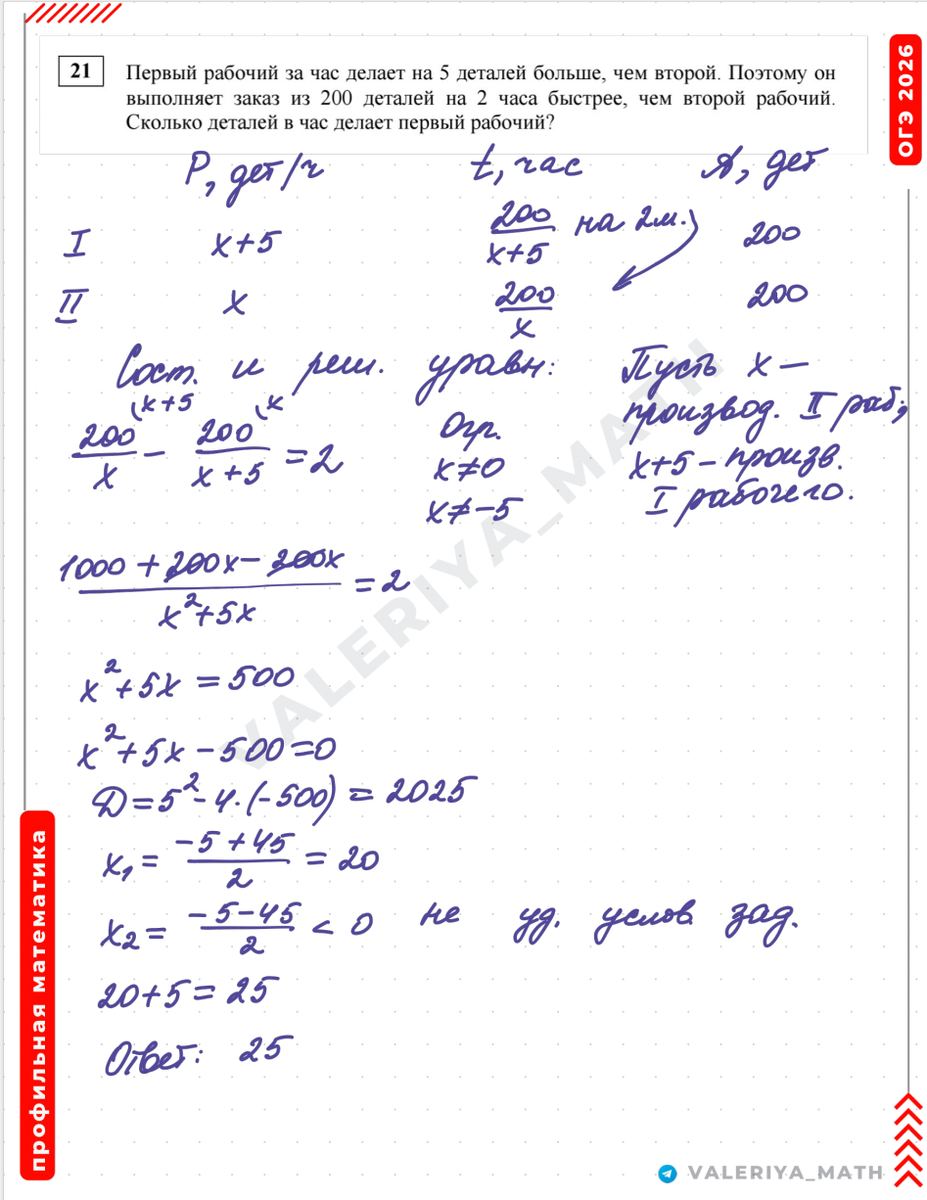 ОГЭ 2026
21
Первый рабочий за час делает на 5 деталей больше, чем второй. Поэтому он
выполняет заказ из 200 деталей на 2 часа быстрее, чем второй рабочий.
Сколько деталей в час делает первый рабочий?
P, дет/ч t, час A, дет
I x+5 200/(x+5) на 2м. 200
II x 200/x 200
Сост. и реш. уравн:
200/x (x+5 − 200/(x+5) (x = 2
Огр.
x≠0
x≠−5
Пусть x −
производ. II раб;
x+5 − произв.
I рабочего.
(1000 + 200x − 200x)/(x²+5x) = 2
x²+5x = 500
x²+5x − 500 = 0
D = 5² − 4·(−500) = 2025
x₁ = (−5+45)/2 = 20
x₂ = (−5−45)/2 < 0 не уд. услов. зад.
20+5 = 25
Ответ: 25
профильная математика
VALERIYA_MATH
VALERIYA_MATH